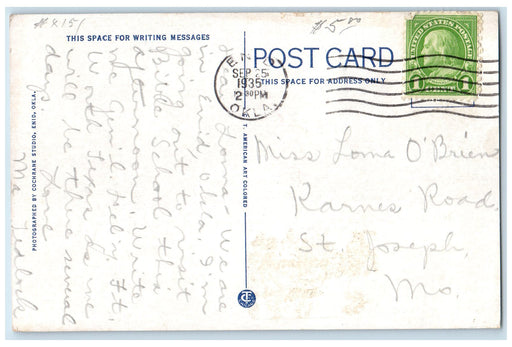 #4151
#-5.00
THIS SPACE FOR WRITING MESSAGES
POST CARD
THIS SPACE FOR ADDRESS ONLY
UNITED STATES POSTAGE
1 1
ENID
SEP 25
2 30PM
1935
OKLA.
Loma - We are
in Enid, Okla. I'm
going out to visit
Bible School this
afternoon. Write
me Genl. Del'y, Ft.
Worth Texas as we
will be there several
days.
Love
Ma
PHOTOGRAPHED BY COCHRANE STUDIO, ENID, OKLA.
C. T. AMERICAN ART COLORED
Miss Loma O'Brien
Karnes Road.
St. Joseph,
Mo.